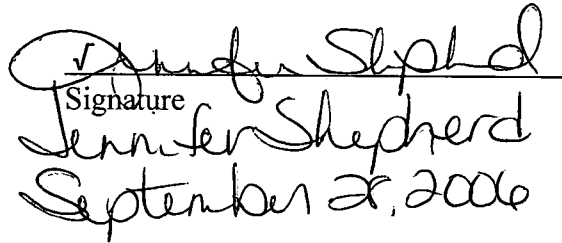 √ Jennifer Shepherd
Signature
Jennifer Shepherd
September 28, 2006